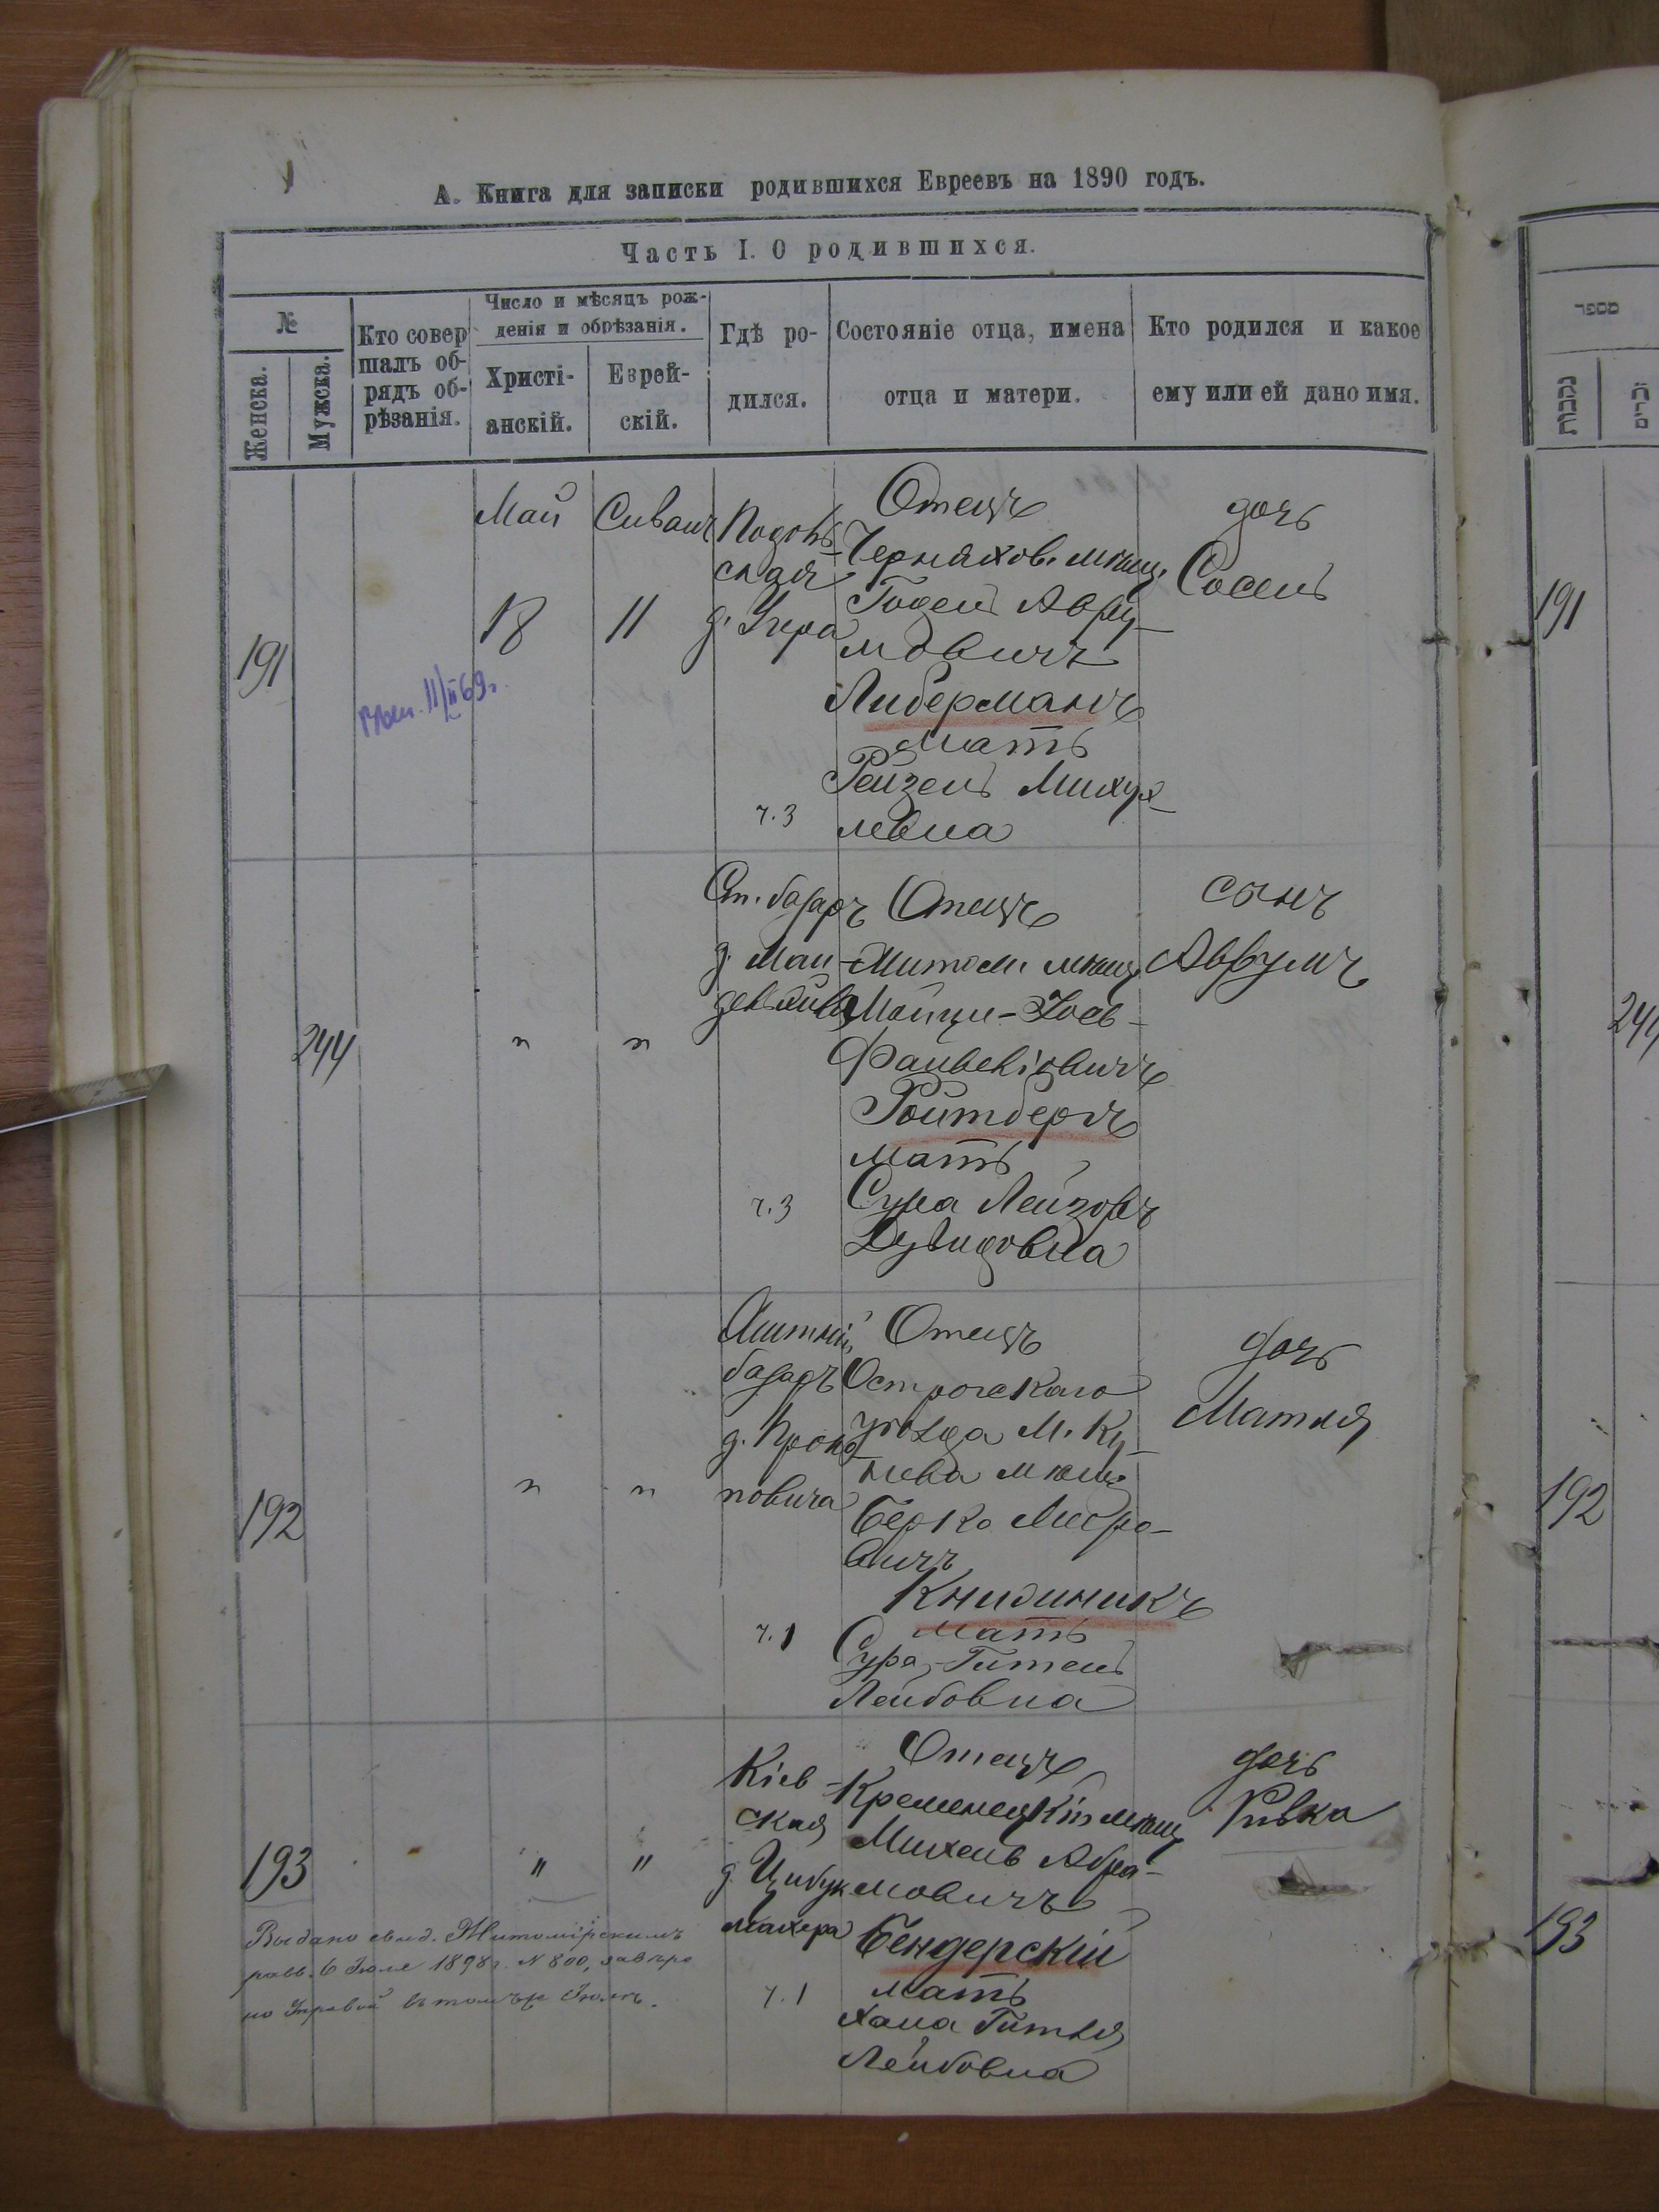 А. Книга для записки родившихся Евреевъ на 1890 годъ.
Часть I. О родившихся.
№
Женска.
Мужска.
Кто совер
шалъ об-
рядъ об-
рѣзанія.
Число и мѣсяцъ рож-
денія и обрѣзанія.
Христі-
анскій.
Еврей-
скій.
Гдѣ ро-
дился.
Состояніе отца, имена
отца и матери.
Кто родился и какое
ему или ей дано имя.
191
11/II 69г.
Май
18
Сиванъ
11
ская
ч.3
Отецъ
Черняхов. мѣщ.
Авру-
мовичъ
Либерманъ
мать
Рейзель
левна
дочь
Сосель
244
"
"
Ст. базаръ
д. Ман-
ч.3
Отецъ
Житом. мѣщ.
Файвелiовичъ
Ройтбергъ
мать
Сура Лейзоръ
Дувидовна
сынъ
Аврумъ
192
"
"
Житній
базаръ
д. Проко
повича
ч.1
Отецъ
Острогскаго
уѣзда М. Ку-
нева мѣщ.
Берко
вичъ
Книжникъ
мать
Сура-Гитель
Лейбовна
дочь
Матля
193
"
"
Кіев-
ская
д. Цибук
махера
ч.1
Отецъ
Кременецкій мѣщ
Михель Абра-
мовичъ
Бендерскій
мать
Хана Гитля
Лейбовна
дочь
Ривка
Выдано свид. Житомірскимъ
равв. 6 Іюля 1898г. № 800, завѣре
но Управой въ томъ же Іюлѣ.
מספר
נקבות
זכרים
191
244
192
193